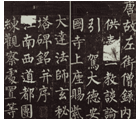 唐故左街僧錄內
供奉三教談論
引駕大德安
國寺上座賜紫
大達法師玄秘
塔碑銘并序
江南西道都團
練觀察處置等